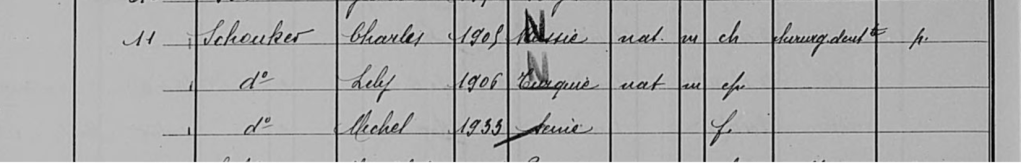 11 Schouker Charles 1905 N Russie nat. m ch chirurg. dentte p.
do Lely 1906 N Turquie nat m ep.
do Michel 1933 f.